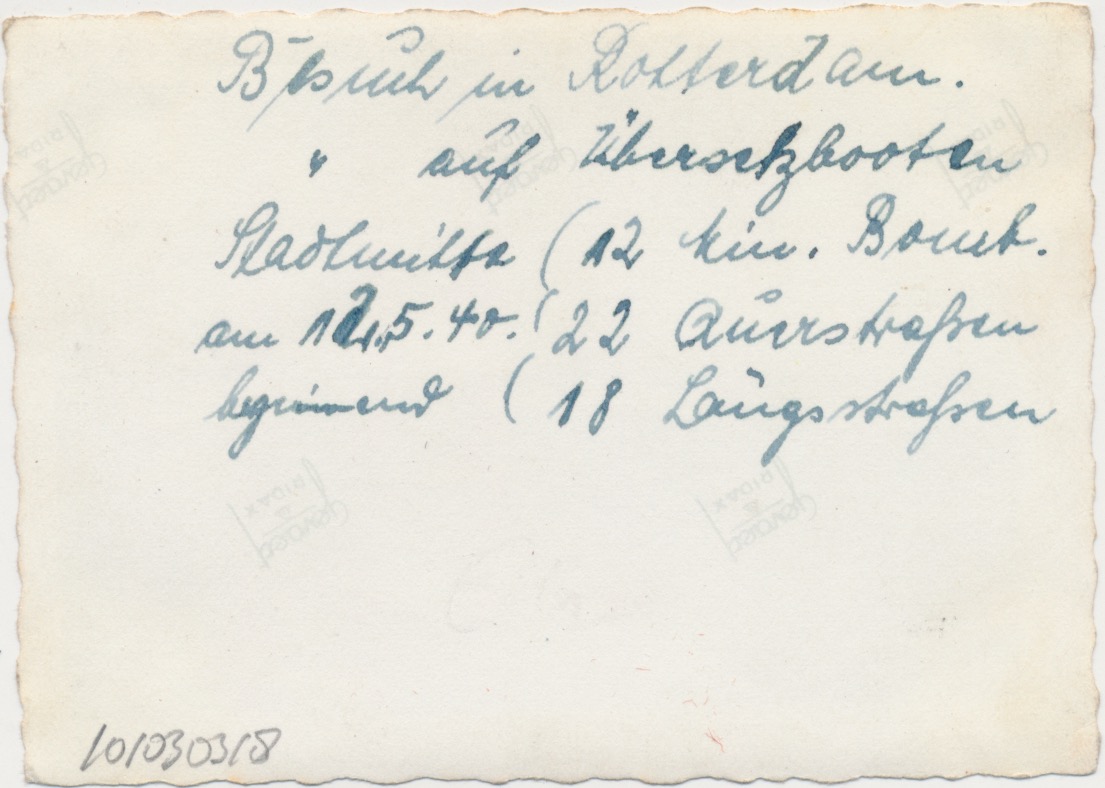 Besuch in Rotterdam.
" auf Übersetzbooten
Stadtmitte ( 12 Min. Bomb.
am 12.5.40. ( 22 Querstraßen
beginnend ( 18 Längsstraßen
Gevaert
RIDAX
Gevaert
RIDAX
Gevaert
RIDAX
Gevaert
RIDAX
Gevaert
RIDAX
101030318